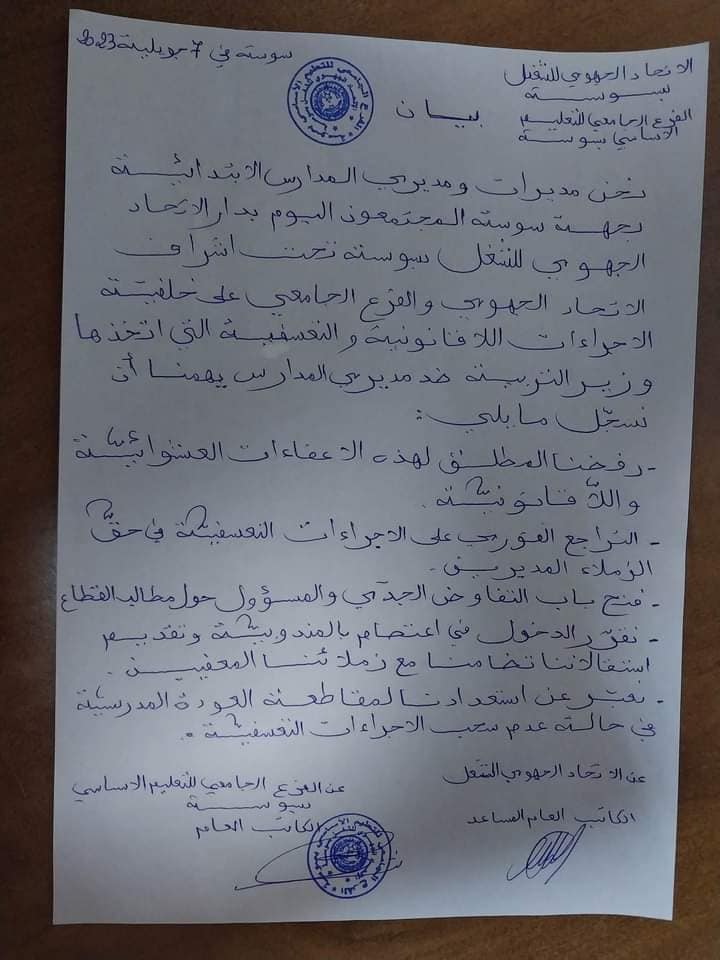 الاتحاد الجهوي للشغل
بسوسة
الفرع الجامعي للتعليم
الاساسي بسوسة
سوسة في 7 جويلية 2023
بيان
نحن مديرات ومديري المدارس الابتدائية
بجهة سوسة المجتمعون اليوم بدار الاتحاد
الجهوي للشغل بسوسة تحت اشراف
الاتحاد الجهوي والفرع الجامعي على خلفية
الاجراءات اللا قانونية والتعسفية التي اتخذها
وزير التربية ضد مديري المدارس يهمنا أن
نسجّل ما يلي:
- رفضنا المطلق لهذه الاعفاءات العشوائيّة
واللاّ قانونيّة.
- التراجع الفوري على الاجراءات التعسفيّة في حقّ
الزملاء المديرين.
- فتح باب التفاوض الجدّي والمسؤول حول مطالب القطاع
- نقرّر الدخول في اعتصام بالمندوبيّة وتقديم
استقالاتنا تضامنا مع زملائنا المعفيين.
- نعبّر عن استعدادنا لمقاطعة العودة المدرسيّة
في حالة عدم سحب الاجراءات التعسفيّة.
عن الاتحاد الجهوي للشغل
الكاتب العام المساعد
عن الفرع الجامعي للتعليم الاساسي
بسوسة
الكاتب العام